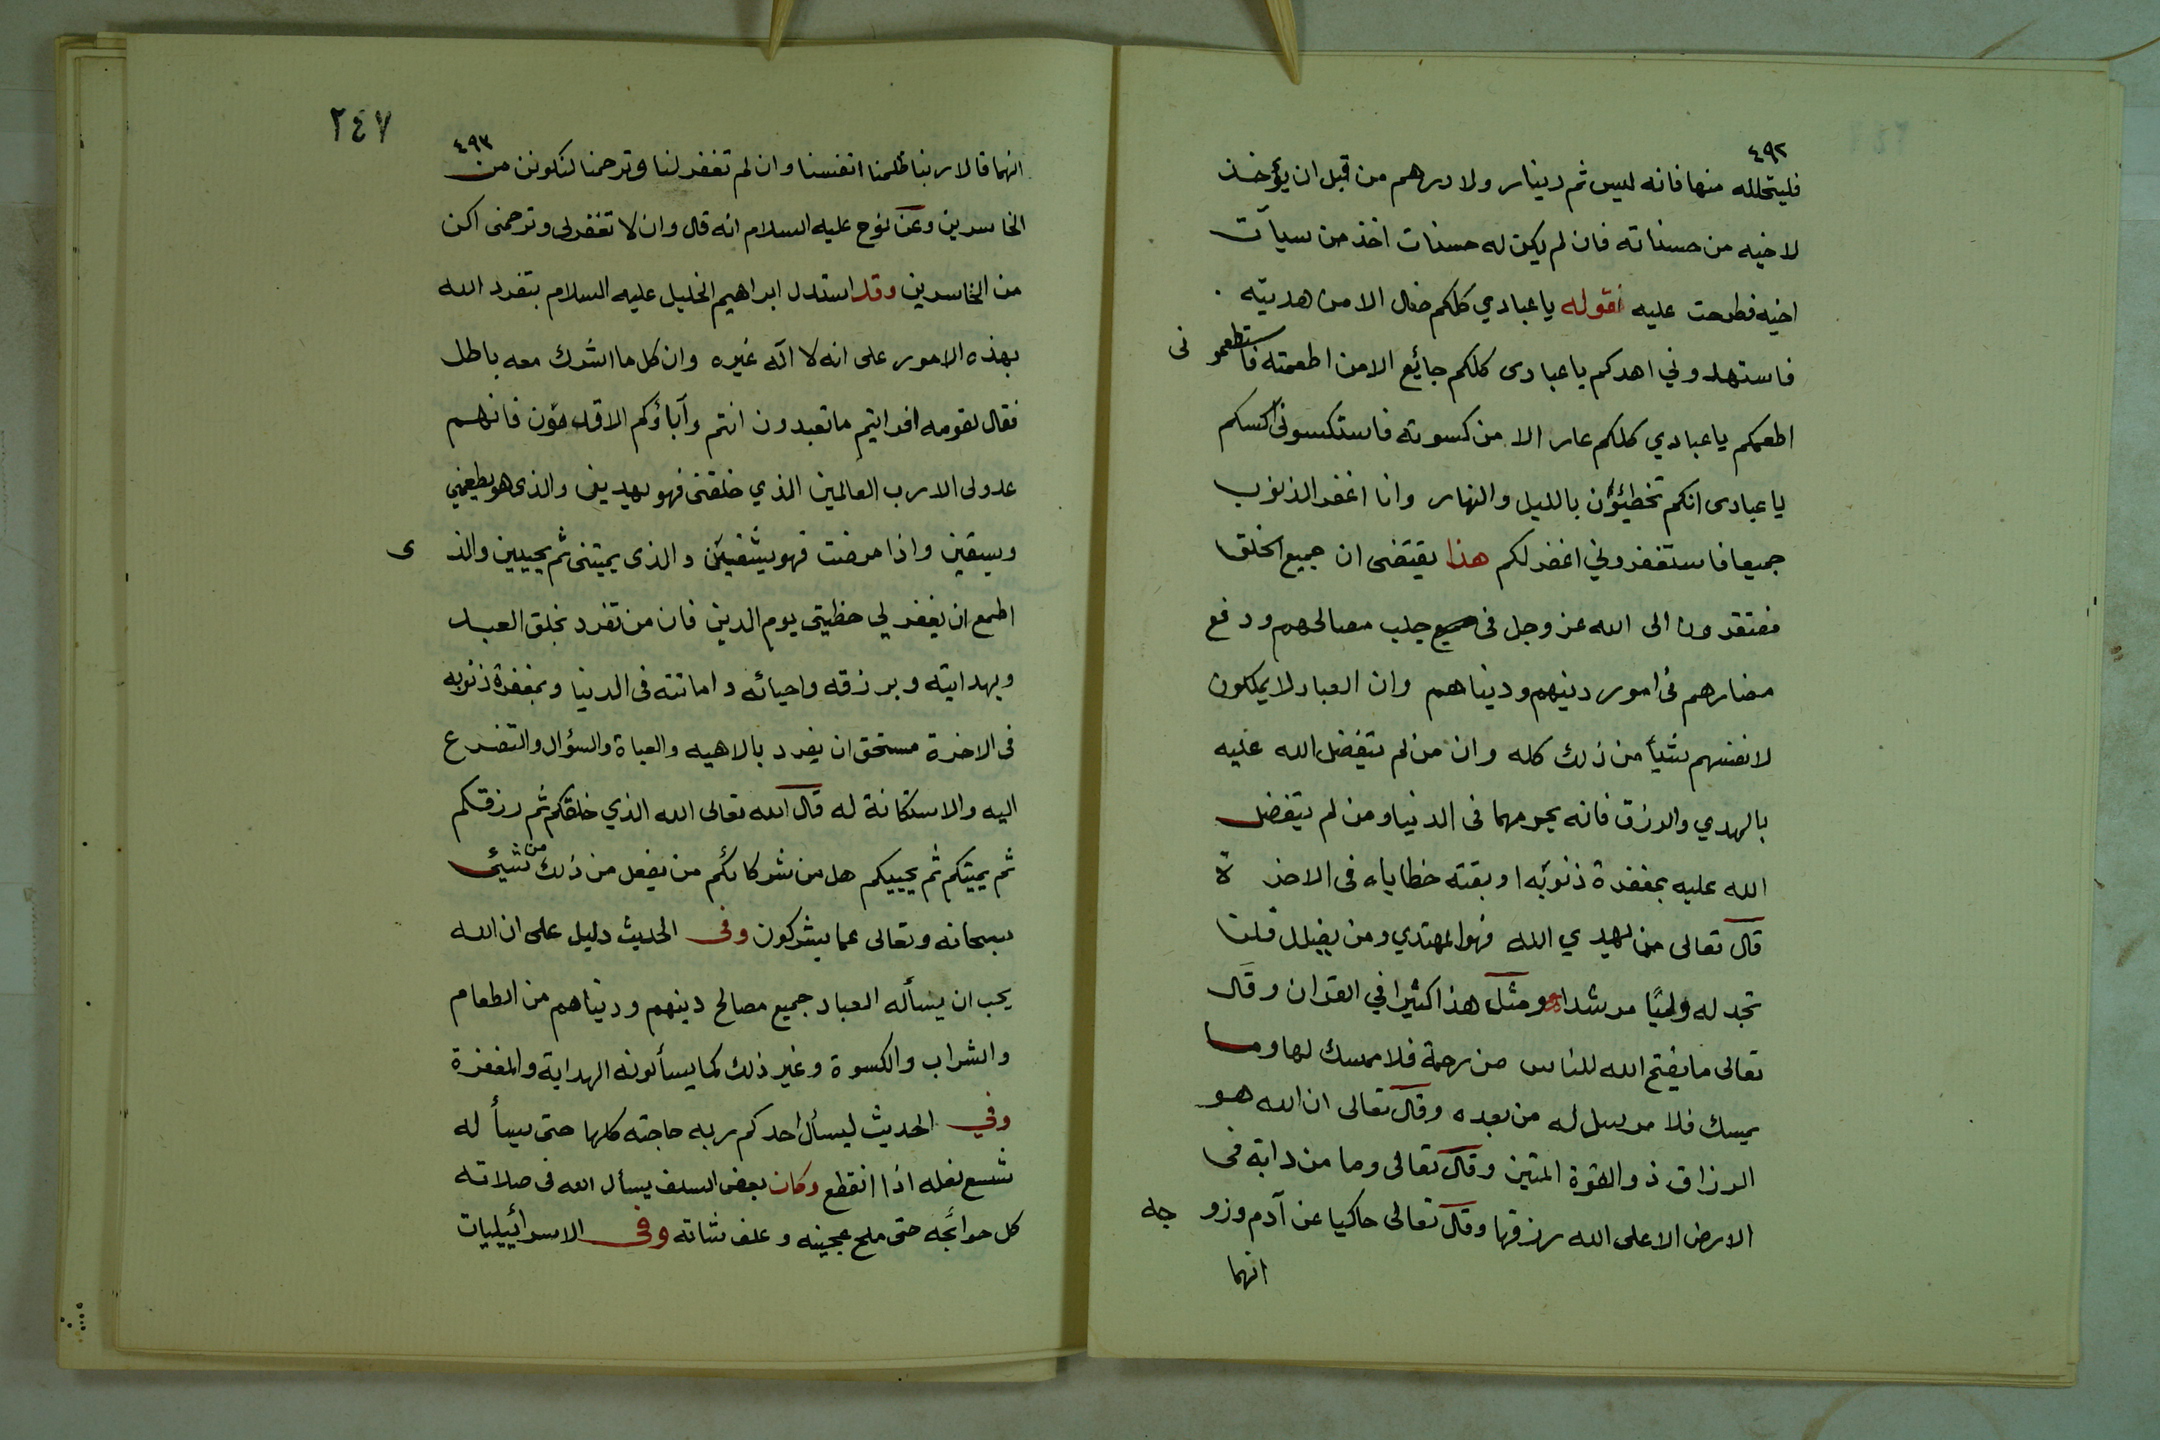 ٤٩٢
فليتحلله منها فانه ليس ثم دينار ولا درهم من قبل ان يؤخذ
لاخيه من حسناته فان لم يكن له حسنات اخذ من سيآت
اخيه فطرحت عليه فقوله يا عبادي كلكم ضال الا من هديته
فاستهدوني اهدكم يا عبادى كلكم جائع الا من اطعمته فاستطعمونى
اطعمكم يا عبادي كلكم عار الا من كسوته فاستكسونى اكسكم
يا عبادى انكم تخطئون بالليل والنهار وانا اغفر الذنوب
جميعا فاستغفروني اغفر لكم هذا يقتضى ان جميع الخلق
مفتقرون الى الله عز وجل فى جميع جلب مصالحهم ودفع
مضارهم فى امور دينهم ودنياهم وان العباد لا يملكون
لانفسهم شيأ من ذلك كله وان من لم يتفضل الله عليه
بالهدي والرزق فانه يحرمهما فى الدنيا ومن لم يتفضل
الله عليه بمغفرة ذنوبه اوبقته خطاياه فى الاخرة
قال تعالى من يهدي الله فهو المهتدي ومن يضلل فلن
تجد له وليًا مرشدا ومثل هذا كثيرا في القران وقال
تعالى ما يفتح الله للناس من رحمة فلا ممسك لها وما
يمسك فلا مرسل له من بعده وقال تعالى ان الله هو
الرزاق ذو القوة المتين وقال تعالى وما من دابة فى
الارض الا على الله رزقها وقال تعالى حاكيا عن آدم وزوجه
انهما
٢٤٧
٤٩٣
انهما قالا ربنا ظلمنا انفسنا وان لم تغفر لنا وترحمنا لنكونن من
الخاسرين وعن نوح عليه السلام انه قال وان لا تغفر لى وترحمنى اكن
من الخاسرين وقد استدل ابراهيم الخليل عليه السلام بتفرد الله
بهذه الامور على انه لا اله غيره وان كل ما اشرك معه باطل
فقال لقومه افرايتم ما تعبدون انتم وآباؤكم الاقدمون فانهم
عدو لى الا رب العالمين الذي خلقنى فهو يهدين والذى هو يطعمني
ويسقين واذا مرضت فهو يشفين والذى يميتنى ثم يحيين والذى
اطمع ان يغفر لي خطيتى يوم الدين فان من تفرد بخلق العبد
وبهدايته وبرزقه واحيائه واماتته فى الدنيا وبمغفرة ذنوبه
فى الاخرة مستحق ان يفرد بالاهيه والعباة والسؤال والتضرع
اليه والاستكانة له قال الله تعالى الله الذي خلقكم ثم رزقكم
ثم يميتكم ثم يحييكم هل من شركائكم من يفعل من ذلك من شيئ
سبحانه وتعالى عما يشركون وفى الحديث دليل على ان الله
يحب ان يسأله العباد جميع مصالح دينهم ودنياهم من الطعام
والشراب والكسوة وغير ذلك كما يسألونه الهداية والمغفرة
وفي الحديث ليسأل احدكم ربه حاجته كلها حتى يسأله
شسع نعله اذا انقطع وكان بعض السلف يسأل الله فى صلاته
كل حوائجه حتى ملح عجينه وعلف شاته وفى الاسرائيليات